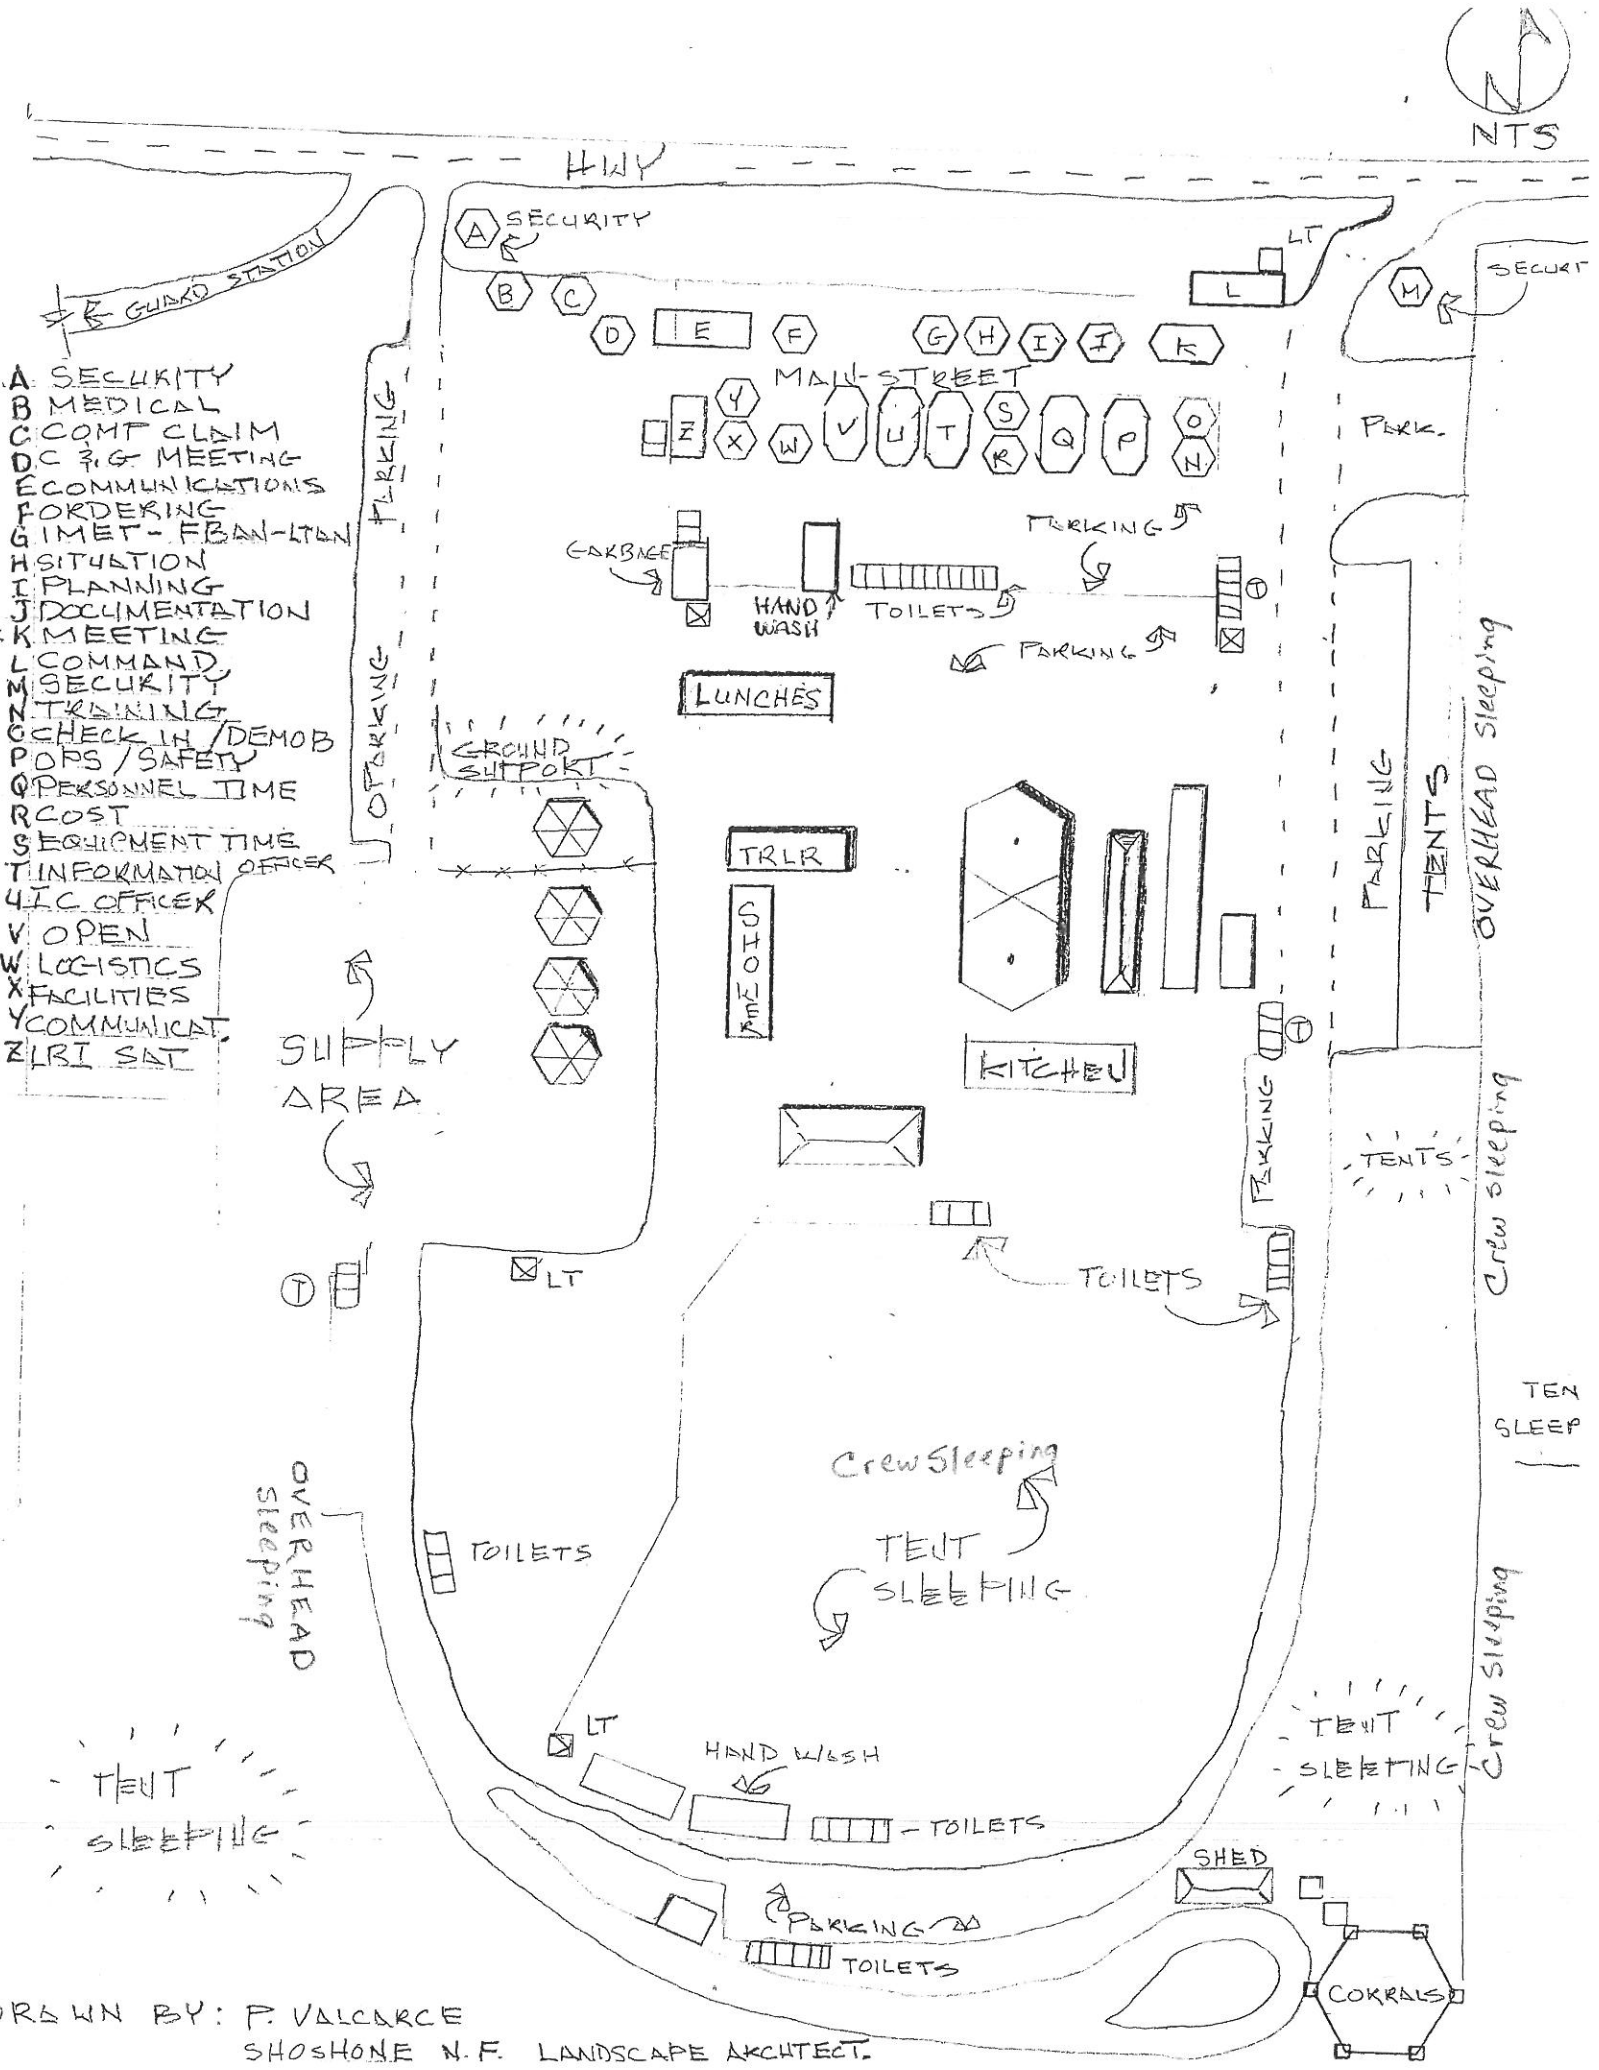 N
NTS
HWY
A
SECURITY
LT
L
GUARD STATION
B
C
M
SECURI
D
E
F
G
H
I
I
K
MAIN STREET
PARKING
Z
Y
X
W
V
U
T
S
R
Q
P
O
N
PARK.
A SECURITY
B MEDICAL
C COMP CLAIM
D C & G MEETING
E COMMUNICATIONS
F ORDERING
G IMET - FBAN-LTAN
H SITUATION
I PLANNING
J DOCUMENTATION
K MEETING
L COMMAND
M SECURITY
N TRAINING
O CHECK IN / DEMOB
P OPS / SAFETY
Q PERSONNEL TIME
R COST
S EQUIPMENT TIME
T INFORMATION OFFICER
U IC OFFICER
V OPEN
W LOGISTICS
X FACILITIES
Y COMMUNICAT.
Z LRI SAT
GARBAGE
HAND
WASH
TOILETS
PARKING
T
PARKING
LUNCHES
PARKING
GROUND
SUPPORT
TRLR
SHOWER
KITCHEN
T
PARKING
TENTS
OVERHEAD Sleeping
SUPPLY
AREA
PARKING
TENTS
Crew Sleeping
T
LT
TOILETS
TEN
SLEEP
Crew Sleeping
TENT
SLEEPING
OVERHEAD
Sleeping
TOILETS
Crew Sleeping
TENT
SLEEPING
LT
HAND WASH
TOILETS
TENT
SLEEPING
SHED
PARKING
TOILETS
CORRALS
DRAWN BY: P. VALCARCE
SHOSHONE N.F. LANDSCAPE ARCHTECT.